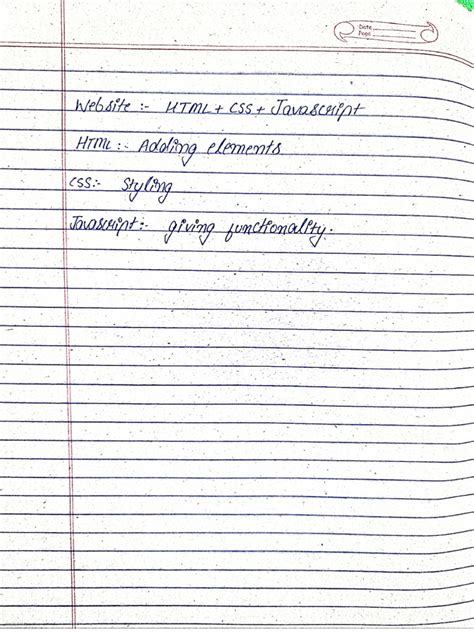 Date
Page
Website :- HTML + CSS + Javascript
HTML :- Adding elements
CSS:- Styling
Javascript:- giving functionality.